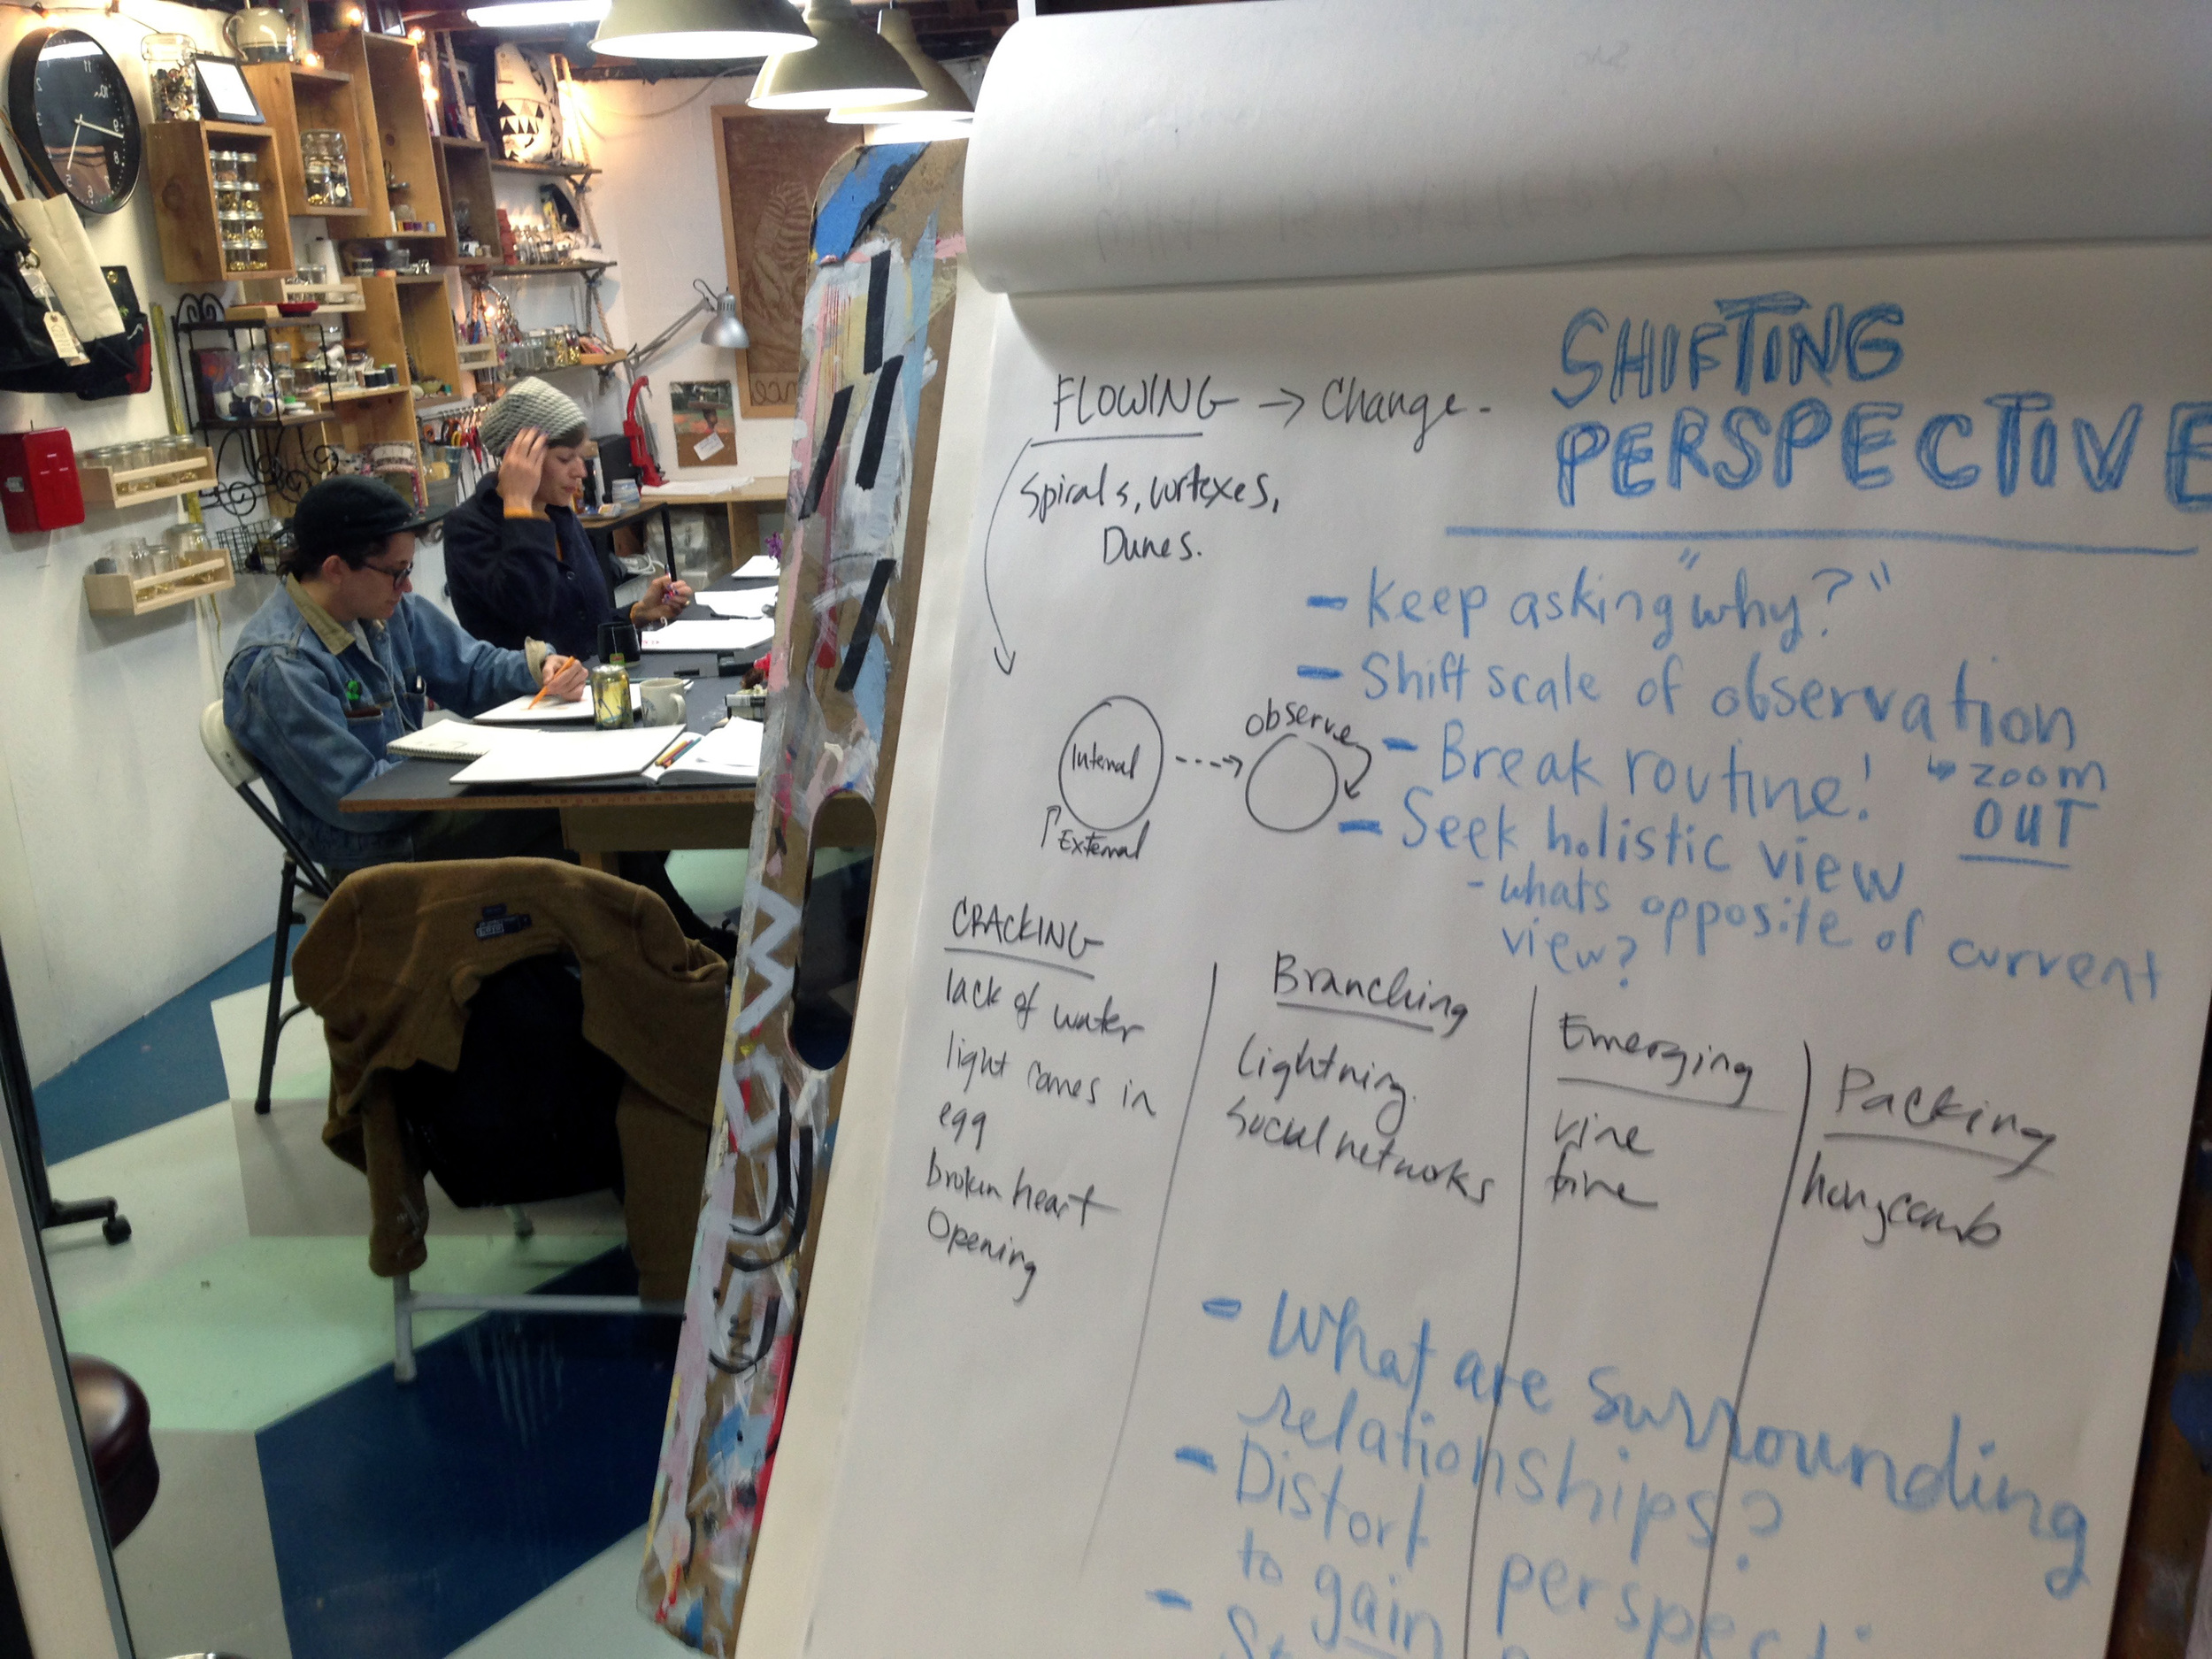 WHAT IS PATTERN ?
SHIFTING
PERSPECTIVE
FLOWING → Change.
Spirals, vortexes,
Dunes.
- Keep asking "why?"
- Shift scale of observation
↳ zoom
OUT
- Break routine!
- Seek holistic view
- whats opposite of current
view?
Internal
External
Observe
CRACKING
lack of water
light comes in
egg
broken heart
Opening
Branching
Lightning
Social networks
Emerging
vine
Packing
honycomb
- What are surrounding
relationships?
- Distort
to gain perspecti